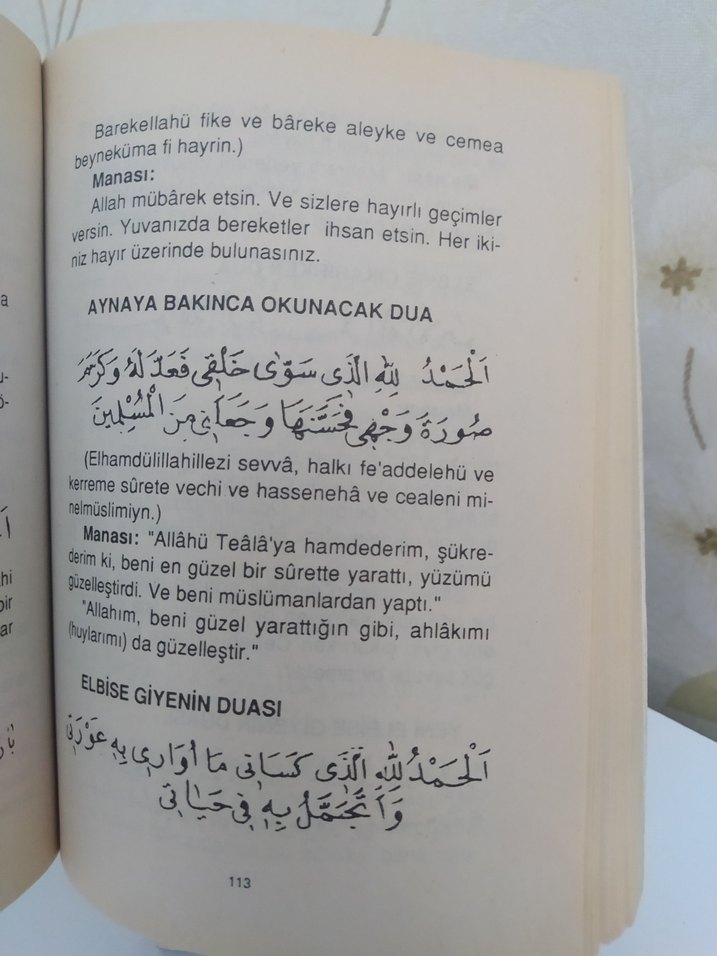 Barekellahü fike ve bâreke aleyke ve cemea
beyneküma fi hayrin.)
Manası:
Allah mübârek etsin. Ve sizlere hayırlı geçimler
versin. Yuvanızda bereketler ihsan etsin. Her iki-
niz hayır üzerinde bulunasınız.
AYNAYA BAKINCA OKUNACAK DUA
اَلْحَمْدُ لِلّٰهِ الَّذِى سَوّٰى خَلْقِى فَعَدَّلَهُ وَكَرَّمَ
صُورَةَ وَجْهِى فَحَسَّنَهَا وَجَعَلَنِى مِنَ الْمُسْلِمِينَ
(Elhamdülillahillezi sevvâ, halkı fe'addelehü ve
kerreme sûrete vechi ve hassenehâ ve cealeni mi-
nelmüslimiyn.)
Manası: "Allâhü Teâlâ'ya hamdederim, şükre-
derim ki, beni en güzel bir sûrette yarattı, yüzümü
güzelleştirdi. Ve beni müslümanlardan yaptı."
"Allahım, beni güzel yarattığın gibi, ahlâkımı
(huylarımı) da güzelleştir."
ELBİSE GİYENİN DUASI
اَلْحَمْدُ لِلّٰهِ الَّذِى كَسَانِى مَا أُوَارِى بِهِ عَوْرَتِى
وَاَتَجَمَّلُ بِهِ فِى حَيَاتِى
113